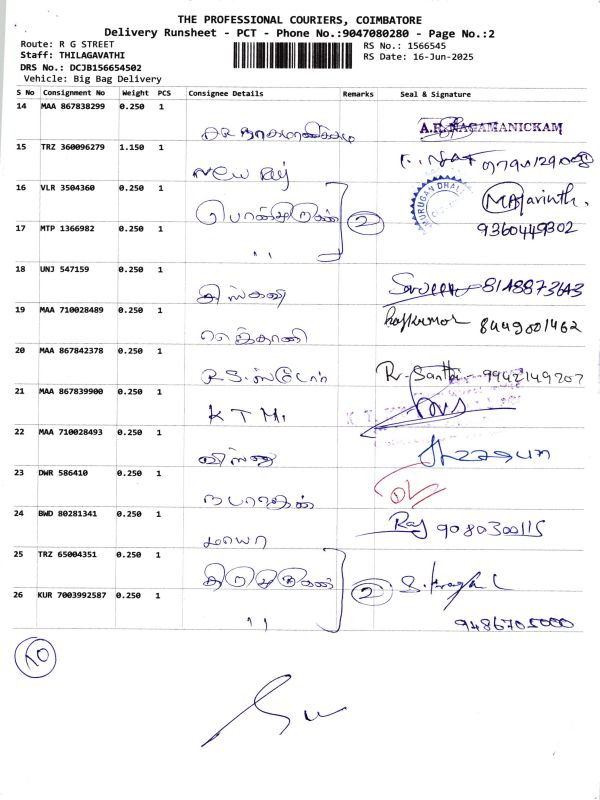 THE PROFESSIONAL COURIERS, COIMBATORE
Delivery Runsheet - PCT - Phone No.:9047080280 - Page No.:2
Route: R G STREET
RS No.: 1566545
Staff: THILAGAVATHI
RS Date: 16-Jun-2025
DRS No.: DCJB156654502
Vehicle: Big Bag Delivery
S No Consignment No Weight PCS Consignee Details Remarks Seal & Signature
14 MAA 867838299 0.250 1
A.R. NAGAMANICKAM
15 TRZ 360096279 1.150 1
New Raj
16 VLR 3504360 0.250 1
2
17 MTP 1366982 0.250 1
9360449302
''
18 UNJ 547159 0.250 1
8148873643
19 MAA 710028489 0.250 1
Rajkumar 8449001462
20 MAA 867842378 0.250 1
R.S. ஸ்டோர்
R. Santhi 9942149207
21 MAA 867839900 0.250 1
K T M
22 MAA 710028493 0.250 1
23 DWR 586410 0.250 1
24 BWD 80281341 0.250 1
மாயா
Raj 9080300115
25 TRZ 65004351 0.250 1
2
26 KUR 7003992587 0.250 1
''
9486705000
10